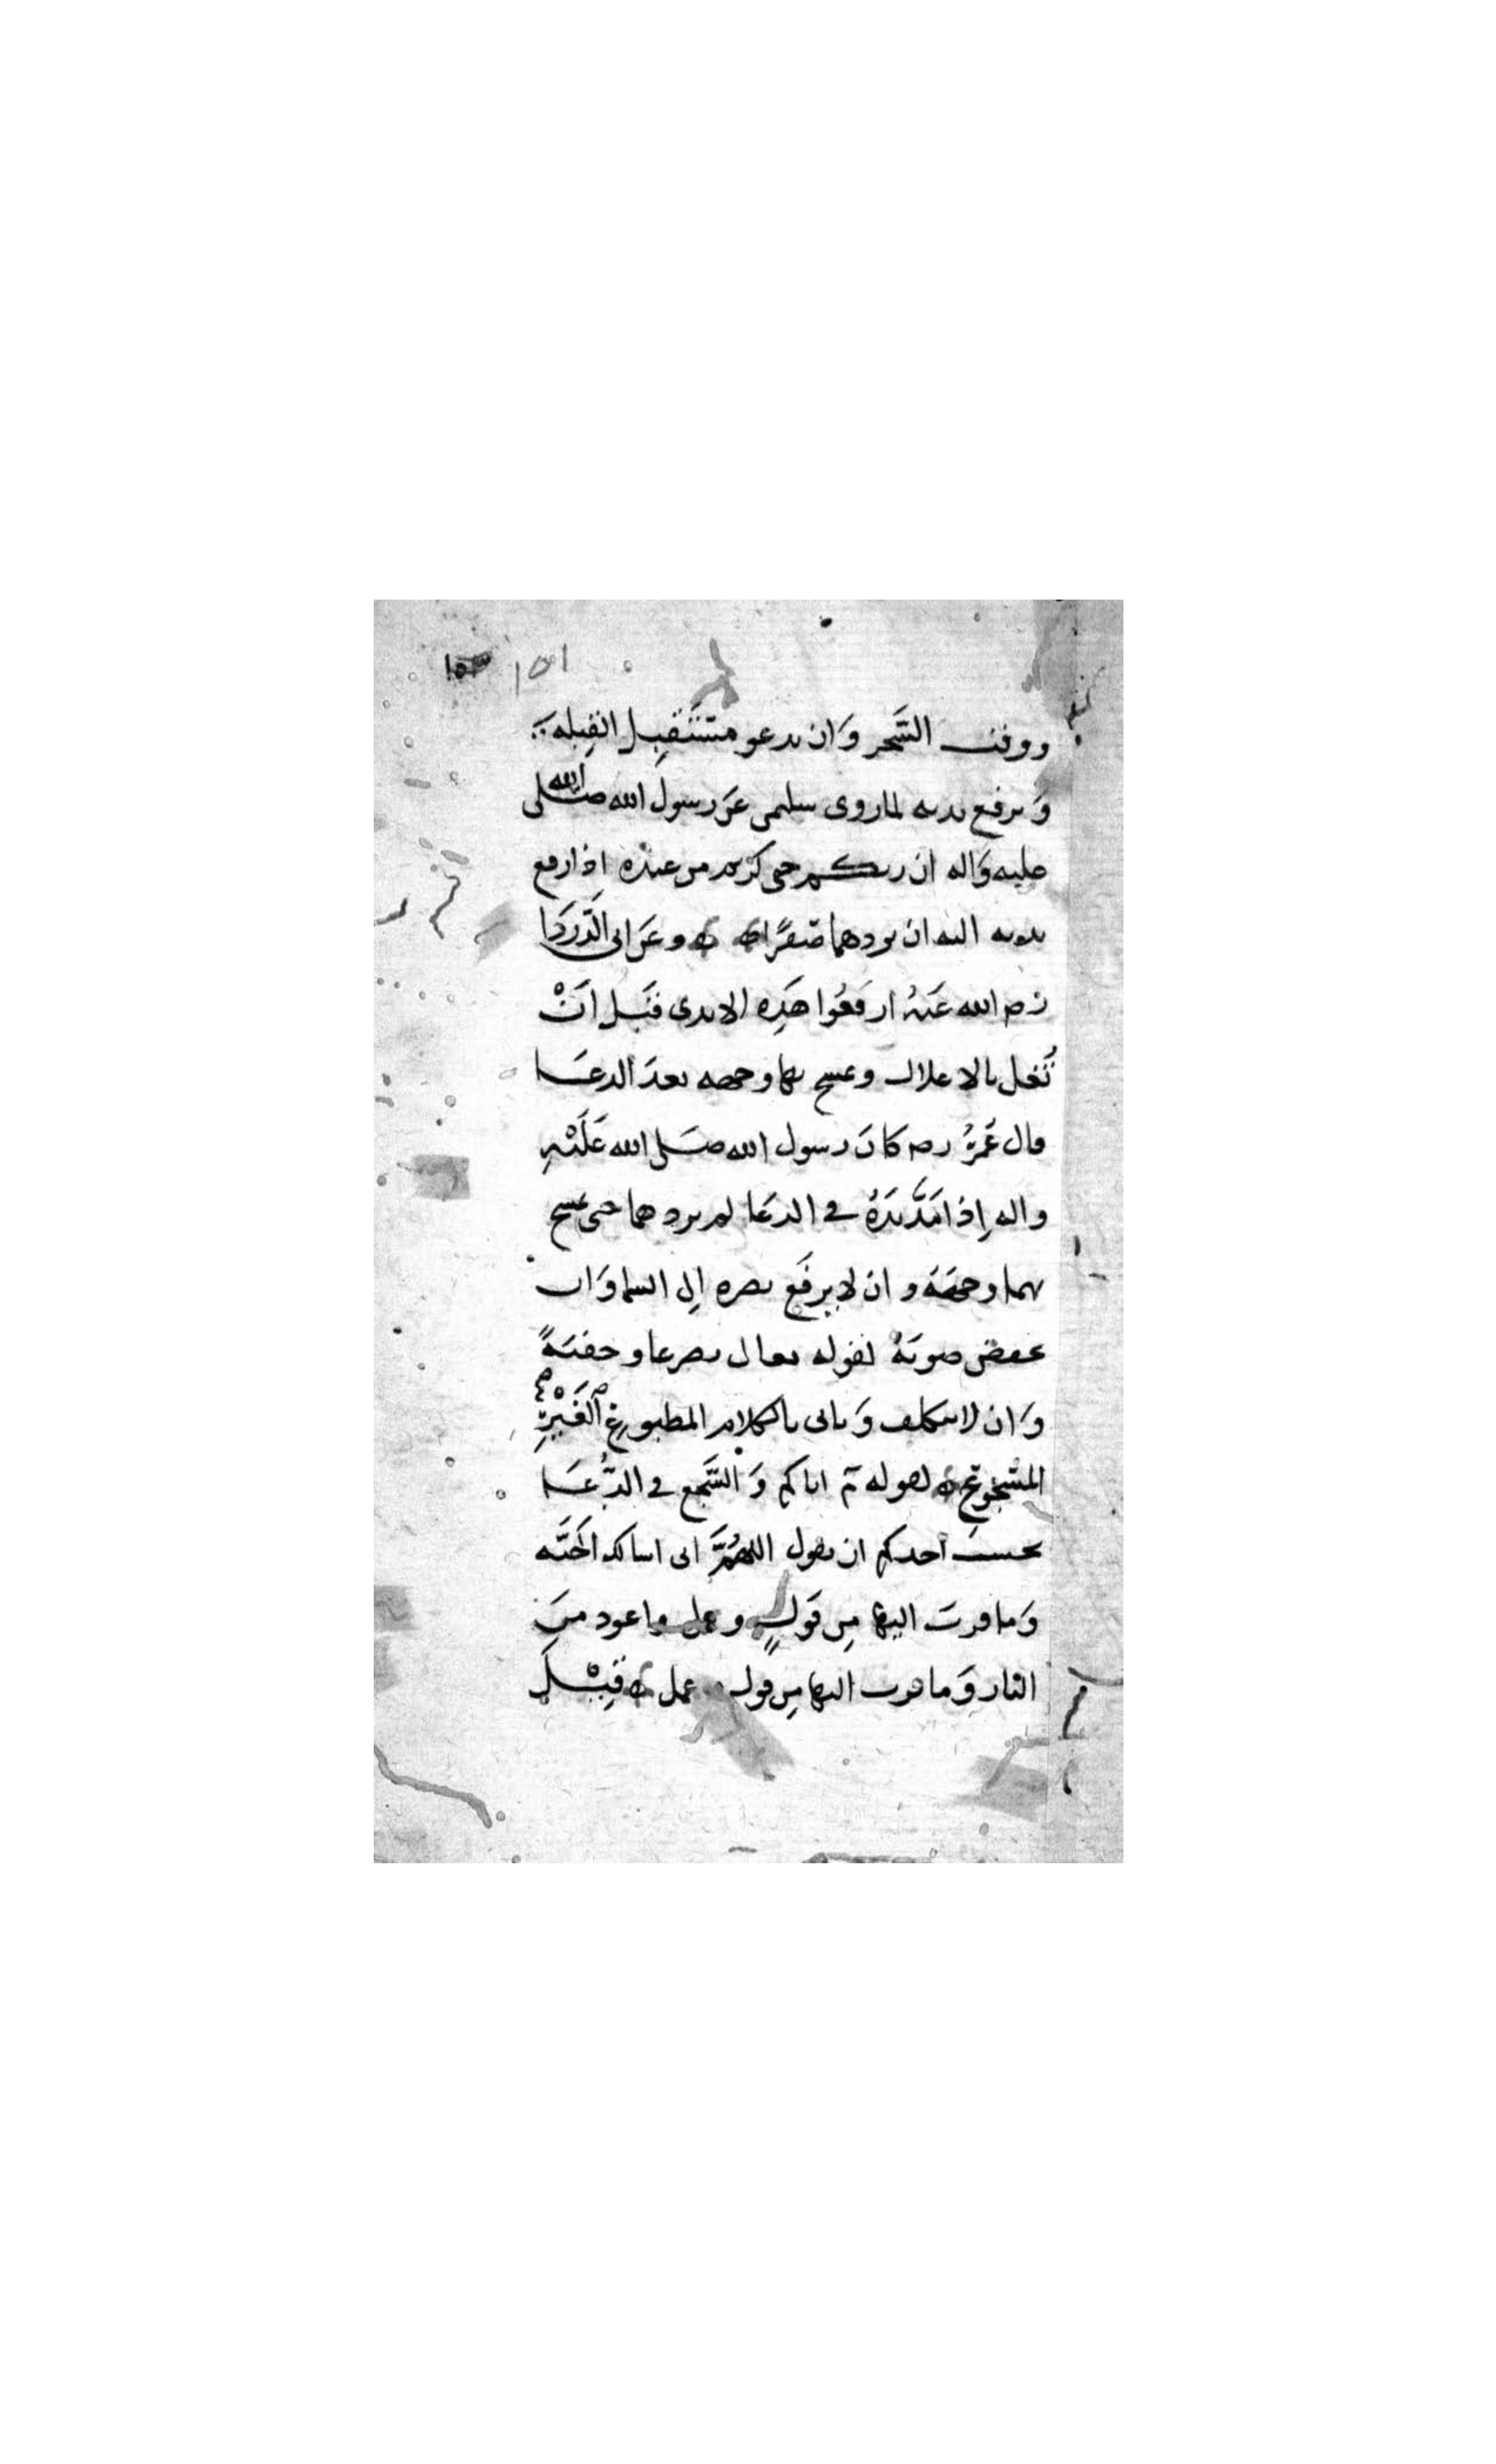 ١٥١ ١٥٣
ووقت السَّحر وَان يدعو مستَقبِل القِبله
وَيرفع يديه لما روى سلمن عَن رسول الله صَلى الله
عليه وَاله ان ربكم حى كريم من عبده اِذا رفع
يديه اليه ان يردهما صفرًا وعَن ابى الدَّردَا
رضه الله عَنهُ ارفعُوا هَذِه الايدى قبَل اَنْ
تُغل بالاغلال ويمسح بهما وجهه بعدَ الدعَا
قال عُمرُ رضه كانَ رسول الله صَلى الله عَلَيْهِ
واله اِذا مَدَّ يَدَهُ في الدعَا لم يردهما حتى يمسح
بهما وجهَهَ وان لا يرفَع بصره اِلى السماوَان
يخفض صوتهُ لقوله تعالى تضرعا وخفيَةً
وَان لا يتكلف وَياتى بالكلام المطبوعِ الغَيْرِ
المسَجوعِ لقوله عم اياكم وَالسَّجع في الدُّعَا
بحسب احدكم ان يقول اللهُمَّ انى اسالك الجَنَّه
وَما قربَ اليها مِن قولٍ وعمل واعوذ مِنَ
النار وَما قرب اليها مِن قول وعمل قِيْلَ